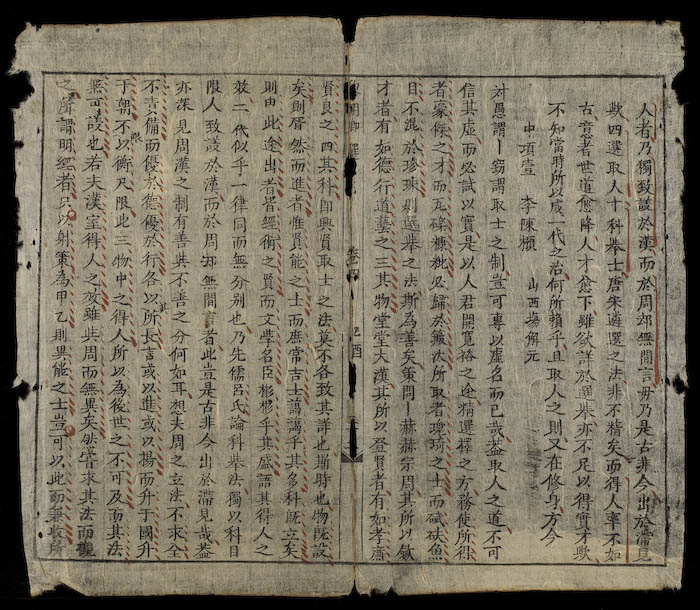 人者乃獨致謹於漢而於周却無間言毋乃是古非今出於滯見
歟四選取人十科舉士唐朱遴選之法非不精矣而得人率不如
古意者世道愈降人才愈下雖欲詳於選舉亦不足以得實才歟
不知當時所以成一代之治何所賴乎且取人之則又在修身方今
中項壹 李陳 山西場解元
對愚謂丨竊謂取士之制豈可專以虛名而已哉蓋取人之道不可
信其虛而必試以實是以人君開寬裕之途精選擇之方務使所得
者豪傑之才而瓦礫糠粃必歸於簸汰所取者瑰琦之士而碔砆魚
目不混於珍珠剡選舉之法斯為善矣策問丨赫赫宗周其所以斂
才者有如德行道藝之三其物堂堂大漢其所以登賢者有如孝廉
賢良之四其科卽興賢取士之法莫不各致其詳也斯時也物既設
矣則屑然而進者惟賢能之士而庶常吉士藹藹乎其多科旣立矣
則由此途出者皆經術之賢而文學名臣彬彬乎其盛語其得人之
效二代似乎一律同而無分別也乃先儒呂氏論科舉法獨以科目
限人致謹於漢而於周却無間言者此豈是古非今出於滯見哉蓋
亦深見周漢之制有善其不善之分何如耳想夫周之立法不求全
不責備而優於德優於行各以所長言或以進或以揚而升于國升
于朝不以衡尺限此三物中之得人所以為後世之不可及而其法
無可議也若夫漢室得人之效雖與周而無異矣然嘗求其法而
之所謂明經者只以射策為甲乙則異能之士豈可以此而兼取所
卷四 乙酉